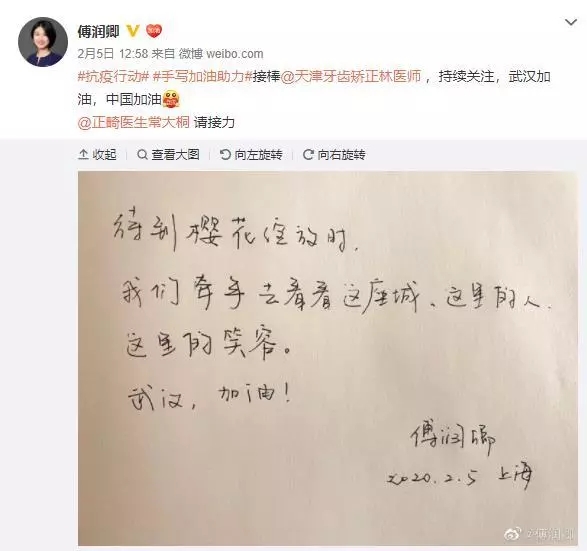 傅润卿
2月5日 12:58 来自 微博 weibo.com
#抗疫行动# #手写加油助力#接棒@天津牙齿矫正林医师 ，持续关注，武汉加
油，中国加油
@正畸医生常大桐 请接力
收起 查看大图 向左旋转 向右旋转
待到樱花绽放时，
我们牵手去看看这座城、这里的人、
这里的笑容。
武汉，加油！
傅润卿
2020.2.5 上海
@傅润卿